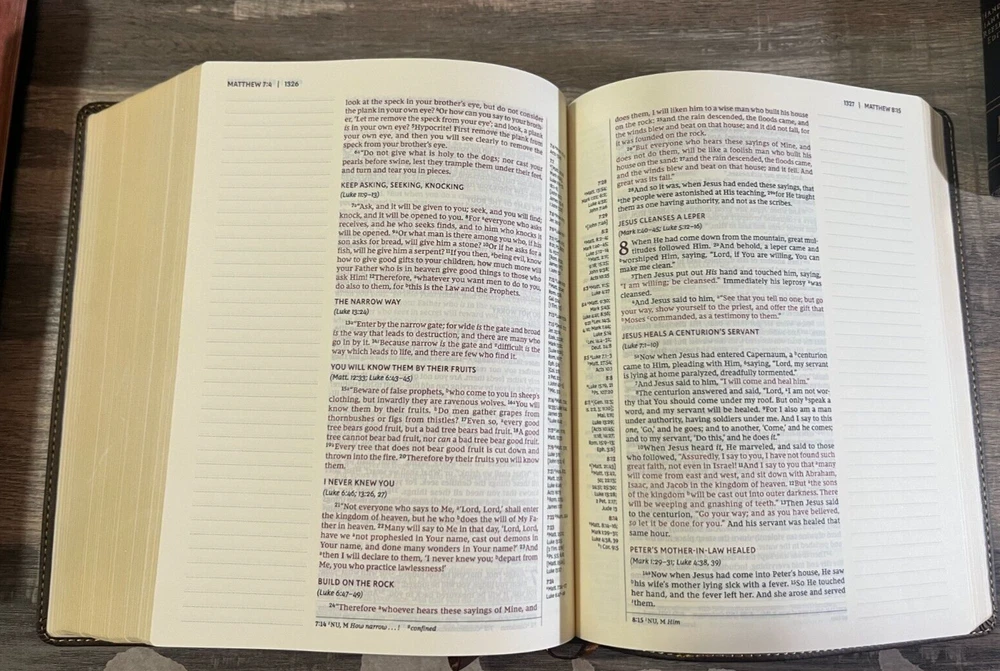 MATTHEW 7:4 | 1326
look at the speck in your brother's eye, but do not consider
the plank in your own eye? ⁴Or how can you say to your broth-
er, 'Let me remove the speck from your eye'; and look, a plank
is in your own eye? ⁵Hypocrite! First remove the plank from
your own eye, and then you will see clearly to remove the
speck from your brother's eye.
⁶"Do not give what is holy to the dogs; nor cast your
pearls before swine, lest they trample them under their feet,
and turn and tear you in pieces.
KEEP ASKING, SEEKING, KNOCKING
(Luke 11:9–13)
⁷"Ask, and it will be given to you; seek, and you will find;
knock, and it will be opened to you. ⁸For everyone who asks
receives, and he who seeks finds, and to him who knocks it
will be opened. ⁹Or what man is there among you who, if his
son asks for bread, will give him a stone? ¹⁰Or if he asks for a
fish, will he give him a serpent? ¹¹If you then, being evil, know
how to give good gifts to your children, how much more will
your Father who is in heaven give good things to those who
ask Him! ¹²Therefore, whatever you want men to do to you,
do also to them, for this is the Law and the Prophets.
THE NARROW WAY
(Luke 13:24)
¹³"Enter by the narrow gate; for wide is the gate and broad
is the way that leads to destruction, and there are many who
go in by it. ¹⁴Because narrow is the gate and difficult is the
way which leads to life, and there are few who find it.
YOU WILL KNOW THEM BY THEIR FRUITS
(Matt. 12:33; Luke 6:43–45)
¹⁵"Beware of false prophets, who come to you in sheep's
clothing, but inwardly they are ravenous wolves. ¹⁶You will
know them by their fruits. Do men gather grapes from
thornbushes or figs from thistles? ¹⁷Even so, every good
tree bears good fruit, but a bad tree bears bad fruit. ¹⁸A good
tree cannot bear bad fruit, nor can a bad tree bear good fruit.
¹⁹Every tree that does not bear good fruit is cut down and
thrown into the fire. ²⁰Therefore by their fruits you will know
them.
I NEVER KNEW YOU
(Luke 6:46; 13:26, 27)
²¹"Not everyone who says to Me, 'Lord, Lord,' shall enter
the kingdom of heaven, but he who does the will of My Fa-
ther in heaven. ²²Many will say to Me in that day, 'Lord, Lord,
have we not prophesied in Your name, cast out demons in
Your name, and done many wonders in Your name?' ²³And
then I will declare to them, 'I never knew you; depart from
Me, you who practice lawlessness!'
BUILD ON THE ROCK
(Luke 6:47–49)
²⁴"Therefore whoever hears these sayings of Mine, and
7:14 ¹NU, M How narrow . . . ! ²confined
1327 | MATTHEW 8:15
does them, I will liken him to a wise man who built his house
on the rock: ²⁵and the rain descended, the floods came, and
the winds blew and beat on that house; and it did not fall, for
it was founded on the rock.
²⁶"But everyone who hears these sayings of Mine, and
does not do them, will be like a foolish man who built his
house on the sand: ²⁷and the rain descended, the floods came,
and the winds blew and beat on that house; and it fell. And
great was its fall."
²⁸And so it was, when Jesus had ended these sayings, that
the people were astonished at His teaching, ²⁹for He taught
them as one having authority, and not as the scribes.
JESUS CLEANSES A LEPER
(Mark 1:40–45; Luke 5:12–16)
8 When He had come down from the mountain, great mul-
titudes followed Him. ²And behold, a leper came and
worshiped Him, saying, "Lord, if You are willing, You can
make me clean."
³Then Jesus put out His hand and touched him, saying,
"I am willing; be cleansed." Immediately his leprosy was
cleansed.
⁴And Jesus said to him, "See that you tell no one; but go
your way, show yourself to the priest, and offer the gift that
Moses commanded, as a testimony to them."
JESUS HEALS A CENTURION'S SERVANT
(Luke 7:1–10)
⁵Now when Jesus had entered Capernaum, a centurion
came to Him, pleading with Him, ⁶saying, "Lord, my servant
is lying at home paralyzed, dreadfully tormented."
⁷And Jesus said to him, "I will come and heal him."
⁸The centurion answered and said, "Lord, I am not wor-
thy that You should come under my roof. But only speak a
word, and my servant will be healed. ⁹For I also am a man
under authority, having soldiers under me. And I say to this
one, 'Go,' and he goes; and to another, 'Come,' and he comes;
and to my servant, 'Do this,' and he does it."
¹⁰When Jesus heard it, He marveled, and said to those
who followed, "Assuredly, I say to you, I have not found such
great faith, not even in Israel! ¹¹And I say to you that many
will come from east and west, and sit down with Abraham,
Isaac, and Jacob in the kingdom of heaven. ¹²But the sons
of the kingdom will be cast out into outer darkness. There
will be weeping and gnashing of teeth." ¹³Then Jesus said
to the centurion, "Go your way; and as you have believed,
so let it be done for you." And his servant was healed that
same hour.
PETER'S MOTHER-IN-LAW HEALED
(Mark 1:29–31; Luke 4:38, 39)
¹⁴Now when Jesus had come into Peter's house, He saw
his wife's mother lying sick with a fever. ¹⁵So He touched
her hand, and the fever left her. And she arose and served
them.
8:15 ¹NU, M Him